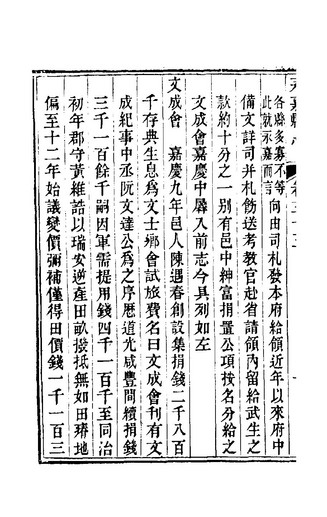 各縣多寡不等
此就永嘉而言
向由司札發本府給領近年以來府中
備文詳司并札飭送考教官赴省請領內留給武生之
款約十分之一別有邑中紳富捐置公項按名分給之
文成會嘉慶中屢入前志今具列如左
文成會 嘉慶九年邑人陳遇春創設集捐錢二千八百
千存典生息為文士鄉會試旅費名曰文成會刊有文
成紀事中丞阮文達公為之序歷道光咸豐間續捐錢
三千一百餘千嗣因軍需提用錢四千一百千至同治
初年郡守黃維誥以瑞安逆產田畝撥抵無如田瘠地
偏至十二年始議變價彌補僅得田價錢一千一百三